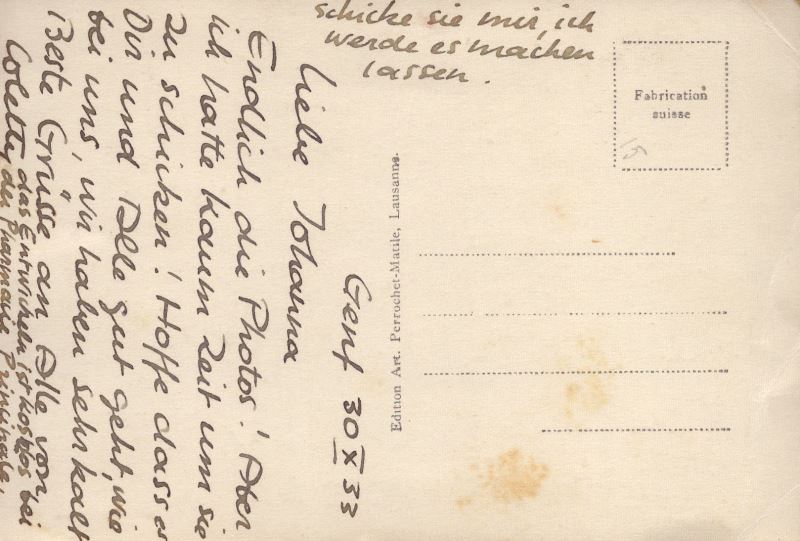 Genf 30 X 33
Liebe Johanna
Endlich die Photos! Aber
ich hatte kaum Zeit um sie
zu schicken! Hoffe dass es
Dir und Alle gut geht, wie
bei uns, wir haben sehr kalt
Beste Grüsse an Alle von
Coletty
das Entwickeln ist kostlos bei
der Pharmacie Principale,
schicke sie mir, ich
werde es machen
lassen.
Edition Art. Perrochet-Matile, Lausanne.
Fabrication
suisse